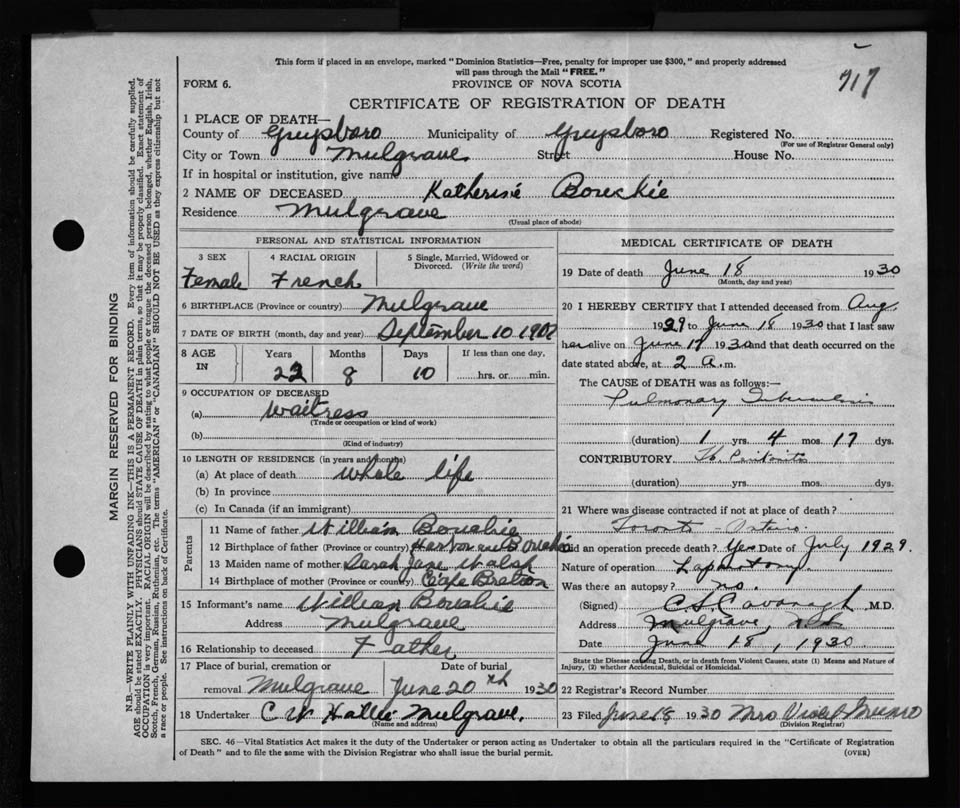 This form if placed in an envelope, marked "Dominion Statistics—Free, penalty for improper use $300," and properly addressed
will pass through the Mail "FREE."
717
FORM 6.
PROVINCE OF NOVA SCOTIA
CERTIFICATE OF REGISTRATION OF DEATH
1 PLACE OF DEATH—
County of Guysboro Municipality of Guysboro Registered No.
(For use of Registrar General only)
City or Town Mulgrave Street House No.
If in hospital or institution, give name
2 NAME OF DECEASED Katherine
Residence Mulgrave
(Usual place of abode)
PERSONAL AND STATISTICAL INFORMATION
3 SEX 4 RACIAL ORIGIN 5 Single, Married, Widowed or
Divorced. (Write the word)
Female French
6 BIRTHPLACE (Province or country) Mulgrave
7 DATE OF BIRTH (month, day and year) September 10
8 AGE IN Years Months Days If less than one day,
8 10 hrs. or min.
9 OCCUPATION OF DECEASED
(a) Waitress
(Trade or occupation or kind of work)
(b)
(Kind of industry)
10 LENGTH OF RESIDENCE (in years and months)
(a) At place of death whole life
(b) In province
(c) In Canada (if an immigrant)
Parents
11 Name of father William
12 Birthplace of father (Province or country)
13 Maiden name of mother Sarah Jane Walsh
14 Birthplace of mother (Province or country) Cape Breton
15 Informant's name William
Address Mulgrave
16 Relationship to deceased Father
17 Place of burial, cremation or Date of burial
removal Mulgrave June 20th 1930
18 Undertaker C W Mulgrave.
(Name and address)
MEDICAL CERTIFICATE OF DEATH
19 Date of death June 18 1930
(Month, day and year)
20 I HEREBY CERTIFY that I attended deceased from Aug.
1929 to June 18 1930 that I last saw
her alive on June 17 1930 and that death occurred on the
date stated above, at 2 A. m.
The CAUSE OF DEATH was as follows:—
Pulmonary Tuberculosis
(duration) 1 yrs. 4 mos. 17 dys.
CONTRIBUTORY Tb.
(duration) yrs. mos. dys.
21 Where was disease contracted if not at place of death?
Toronto - Ontario.
Did an operation precede death? Yes Date of July 1929.
Nature of operation Laparotomy
Was there an autopsy? no.
(Signed) C. S. Cavanagh M.D.
Address Mulgrave, N.S.
Date June 18, 1930
State the Disease causing Death, or in death from Violent Causes, state (1) Means and Nature of
Injury, (2) whether Accidental, Suicidal or Homicidal.
22 Registrar's Record Number
23 Filed June 18 1930 Mrs Violet Munro
(Division Registrar)
SEC. 46—Vital Statistics Act makes it the duty of the Undertaker or person acting as Undertaker to obtain all the particulars required in the "Certificate of Registration
of Death" and to file the same with the Division Registrar who shall issue the burial permit. (OVER)
MARGIN RESERVED FOR BINDING
N.B.—WRITE PLAINLY WITH UNFADING INK—THIS IS A PERMANENT RECORD. Every item of information should be carefully supplied.
AGE should be stated EXACTLY. PHYSICIANS should STATE CAUSE OF DEATH in plain terms, so that it may be properly classified. Exact statement of
OCCUPATION is very important. RACIAL ORIGIN will be described by stating to what people or tongue the deceased person belonged, whether English, Irish,
Scotch, French, German, Russian, Ruthenian, etc. The terms "AMERICAN" or "CANADIAN" SHOULD NOT BE USED as they express citizenship but not
a race or people. See instructions on back of Certificate.